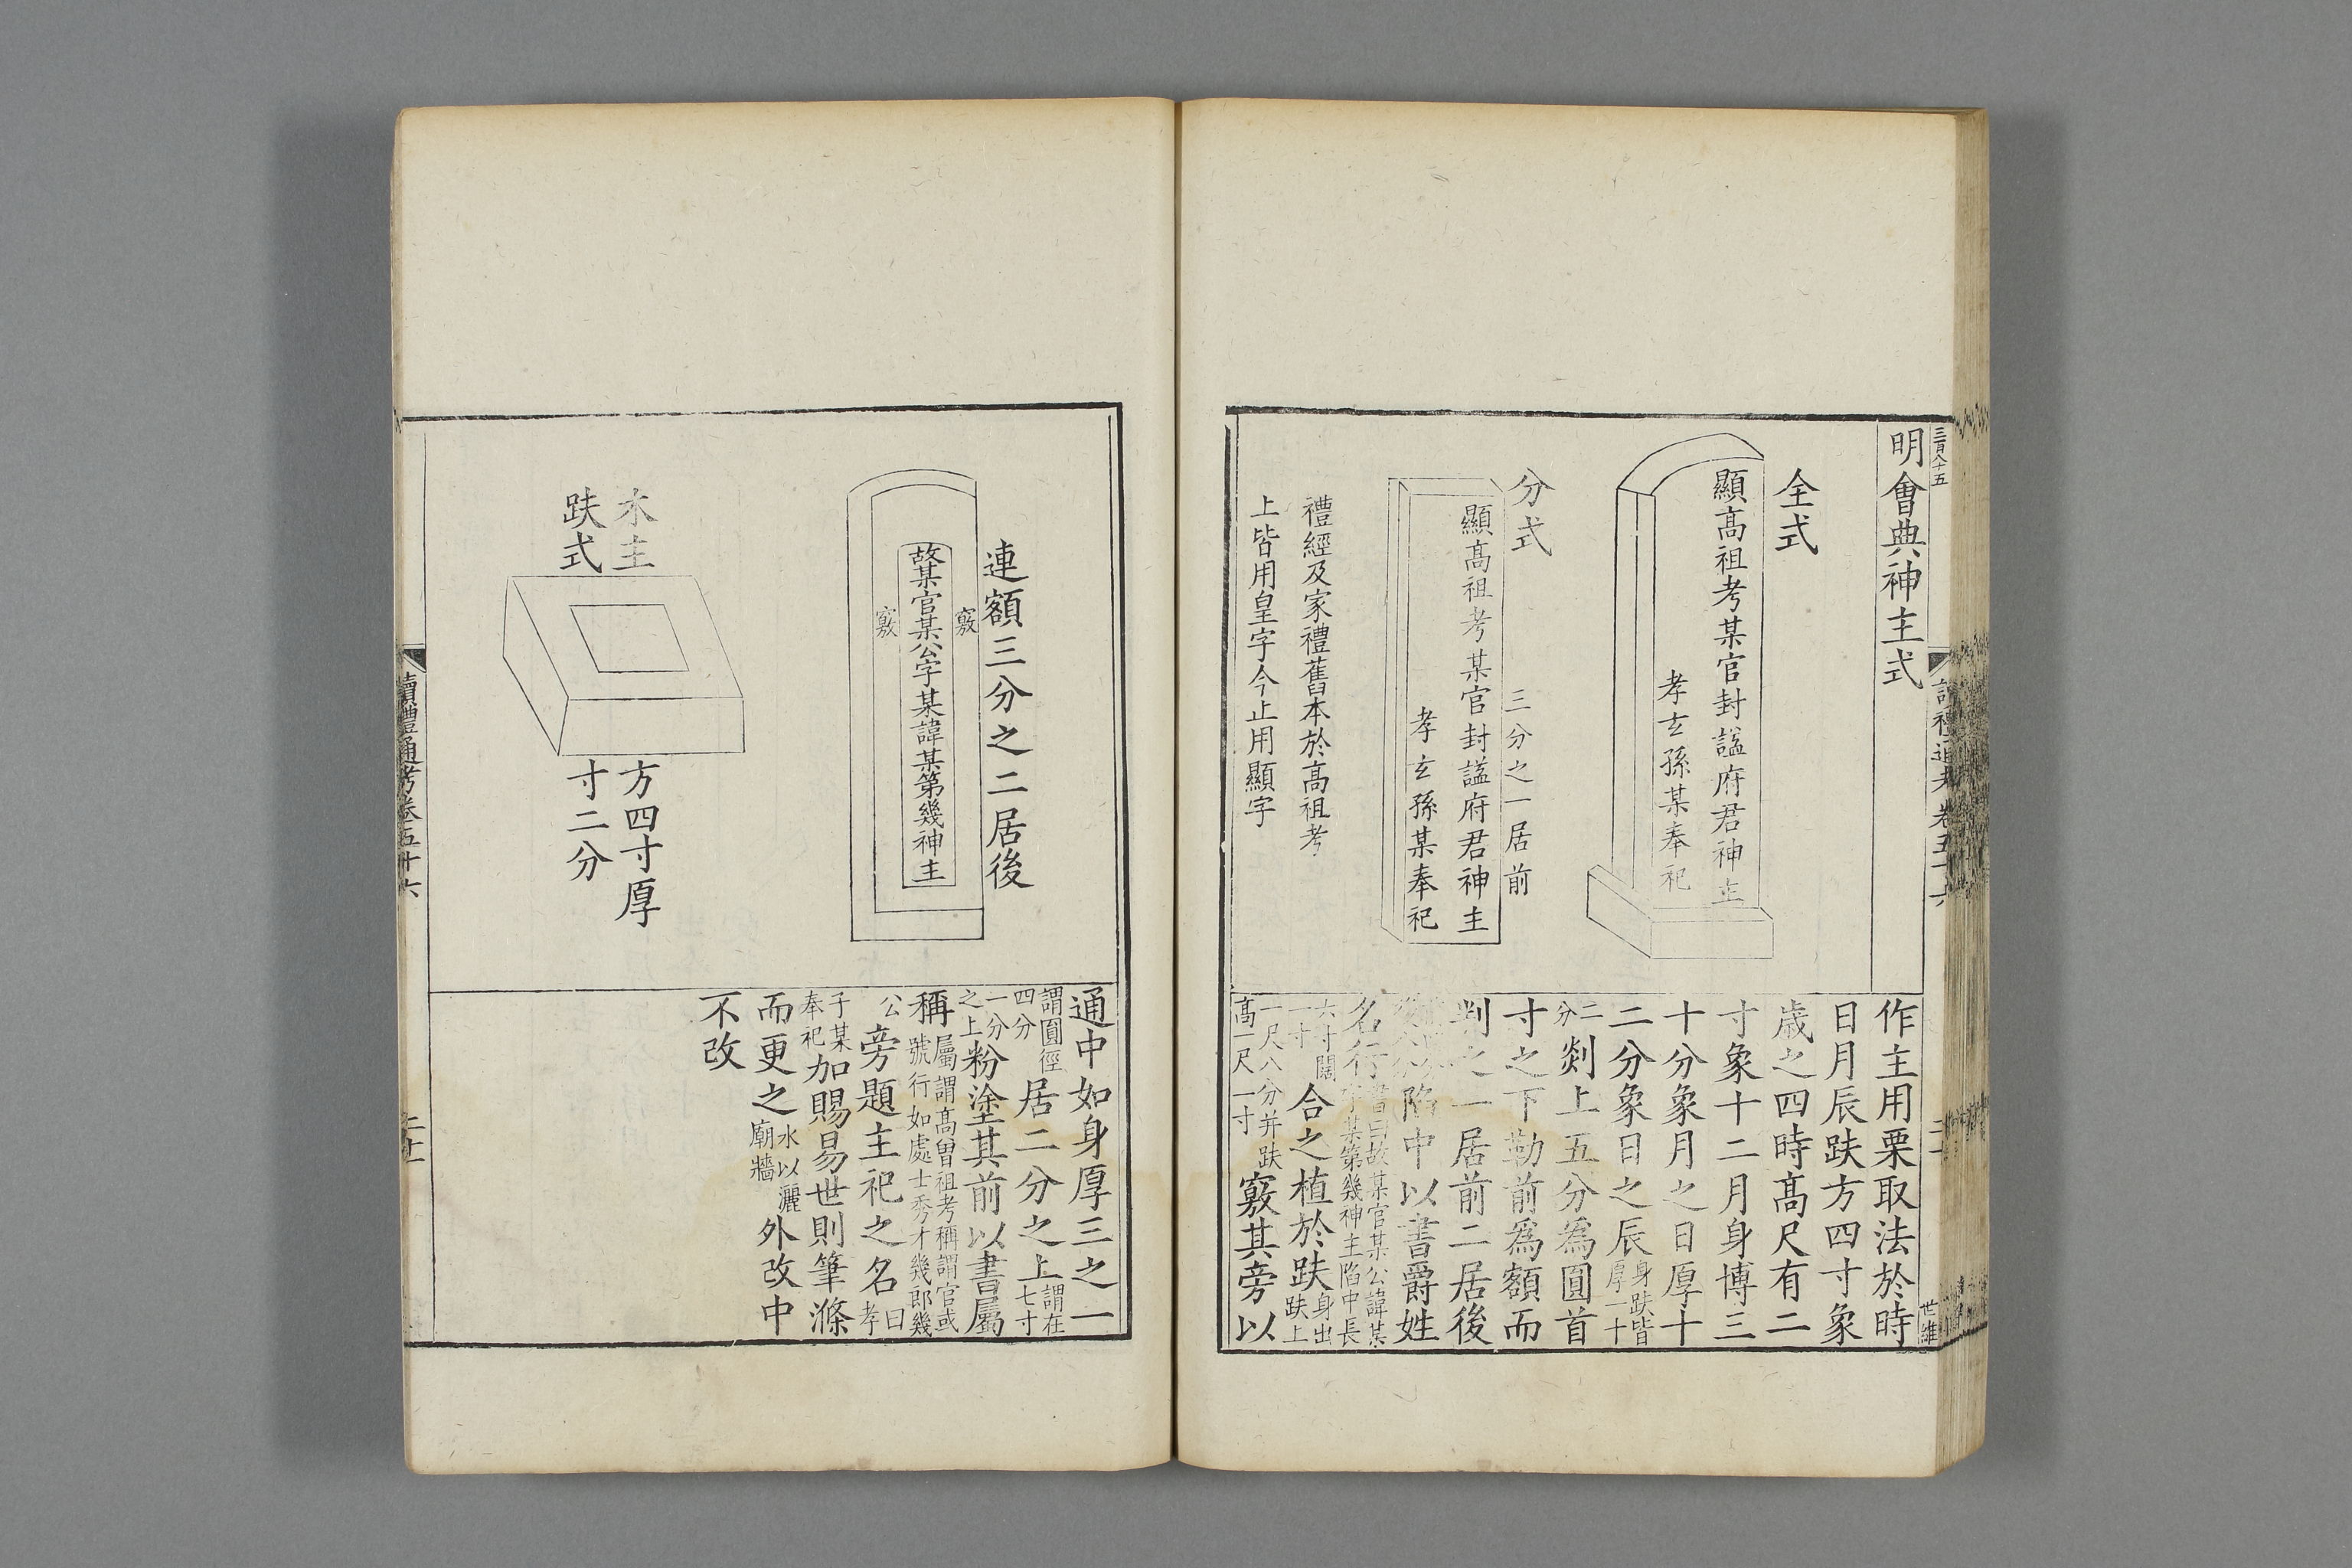 三百八十五
明會典神主式
全式
顯高祖考某官封諡府君神主
孝玄孫某奉祀
分式
三分之一居前
顯高祖考某官封諡府君神主
孝玄孫某奉祀
禮經及家禮舊本於高祖考
上皆用皇字今止用顯字
作主用栗取法於時
日月辰趺方四寸象
歲之四時高尺有二
寸象十二月身博三
十分象月之日厚十
二分象日之辰身趺皆厚一寸
二分剡上五分為圓首
寸之下勒前為額而
判之一居前二居後
陷中以書爵姓
名行書曰故某官某公諱某字某第幾神主陷中長
六寸闊一寸合之植於趺身出趺上
一尺八分并趺高一尺一寸竅其旁以
世維
連額三分之二居後
竅
故某官某公字某諱某第幾神主
竅
木主
趺式
方四寸厚
寸二分
通中如身厚三之一
謂圓徑四分居二分之上謂在七寸
一分之上粉塗其前以書屬
稱屬謂高曾祖考稱謂官或號行如處士秀才幾郎幾
公旁題主祀之名曰孝
子某奉祀加賜易世則筆滌
而更之水以灑廟牆外改中
不改
讀禮通考卷五十六